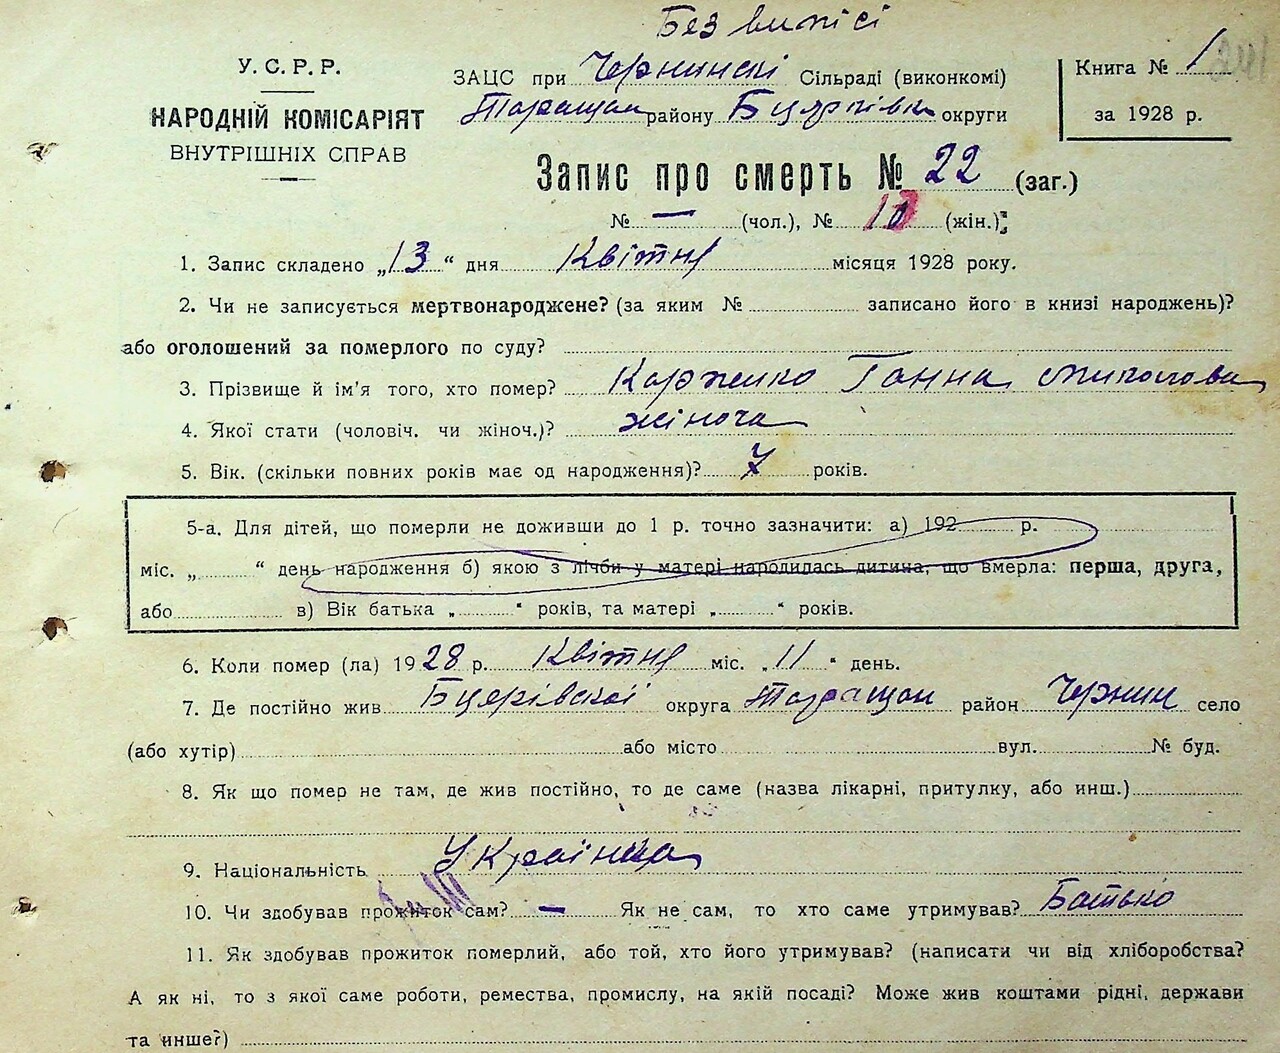 Без виписі
У. С. Р. Р.
НАРОДНІЙ КОМІСАРІЯТ
ВНУТРІШНІХ СПРАВ
ЗАЦС при Чернинскі Сільраді (виконкомі)
Таращан району Б церківск округи
Книга № 1
за 1928 р.
Запис про смерть № 22 (заг.)
№ — (чол.), № 10 (жін.);
1. Запис складено „13“ дня Квітня місяця 1928 року.
2. Чи не записується мертвонароджене? (за яким № записано його в книзі народжень)?
або оголошений за померлого по суду?
3. Прізвище й ім'я того, хто помер? Карженко Ганна Миколаєва
4. Якої стати (чоловіч. чи жіноч.)? жіноча
5. Вік. (скільки повних років має од народження)? 7 років.
5-а. Для дітей, що померли не доживши до 1 р. точно зазначити: а) 192 р.
міс. „ “ день народження б) якою з лічби у матері народилась дитина, що вмерла: перша, друга,
або в) Вік батька „ “ років, та матері „ “ років.
6. Коли помер (ла) 1928 р. Квітня міс. „11“ день.
7. Де постійно жив Б церківскої округа Таращан район Чернин село
(або хутір) або місто вул. № буд.
8. Як що помер не там, де жив постійно, то де саме (назва лікарні, притулку, або инш.)
9. Національність Українка
10. Чи здобував прожиток сам? — Як не сам, то хто саме утримував? Батько
11. Як здобував прожиток померлий, або той, хто його утримував? (написати чи від хліборобства?
А як ні, то з якої саме роботи, ремества, промислу, на якій посаді? Може жив коштами рідні, держави
та инше?)